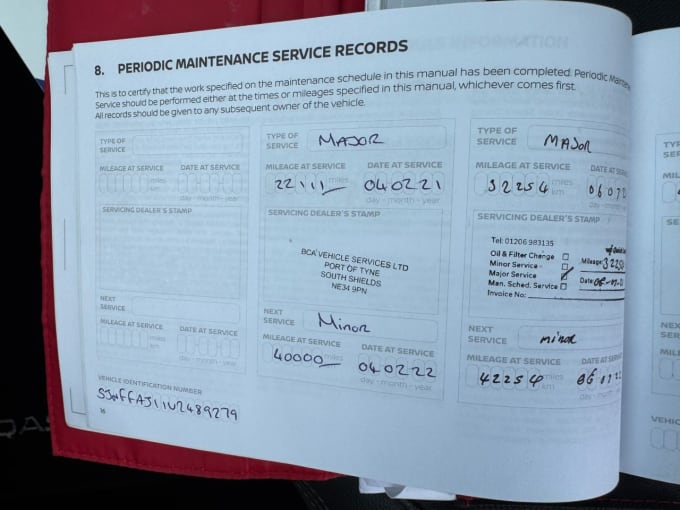 8. PERIODIC MAINTENANCE SERVICE RECORDS
This is to certify that the work specified on the maintenance schedule in this manual has been completed. Periodic
Service should be performed either at the times or mileages specified in this manual, whichever comes first.
All records should be given to any subsequent owner of the vehicle.
TYPE OF
SERVICE
MILEAGE AT SERVICE DATE AT SERVICE
miles
km
day - month - year
SERVICING DEALER'S STAMP
NEXT
SERVICE
MILEAGE AT SERVICE DATE AT SERVICE
miles
km
day - month - year
VEHICLE IDENTIFICATION NUMBER
16
TYPE OF
SERVICE MAJOR
MILEAGE AT SERVICE DATE AT SERVICE
22111 040221
day - month - year
SERVICING DEALER'S STAMP
BCA VEHICLE SERVICES LTD
PORT OF TYNE
SOUTH SHIELDS
NE34 9PN
NEXT
SERVICE Minor
MILEAGE AT SERVICE DATE AT SERVICE
40000 miles 040222
day - month - year
TYPE OF
SERVICE MAJOR
MILEAGE AT SERVICE DATE AT
32254 miles
km
SERVICING DEALER'S STAMP
Tel: 01206 983135
Oil & Filter Change
Minor Service
Major Service
Man. Sched. Service
Invoice No:
Mileage:
Date:
NEXT
SERVICE minor
MILEAGE AT SERVICE DATE AT
42254 miles
km